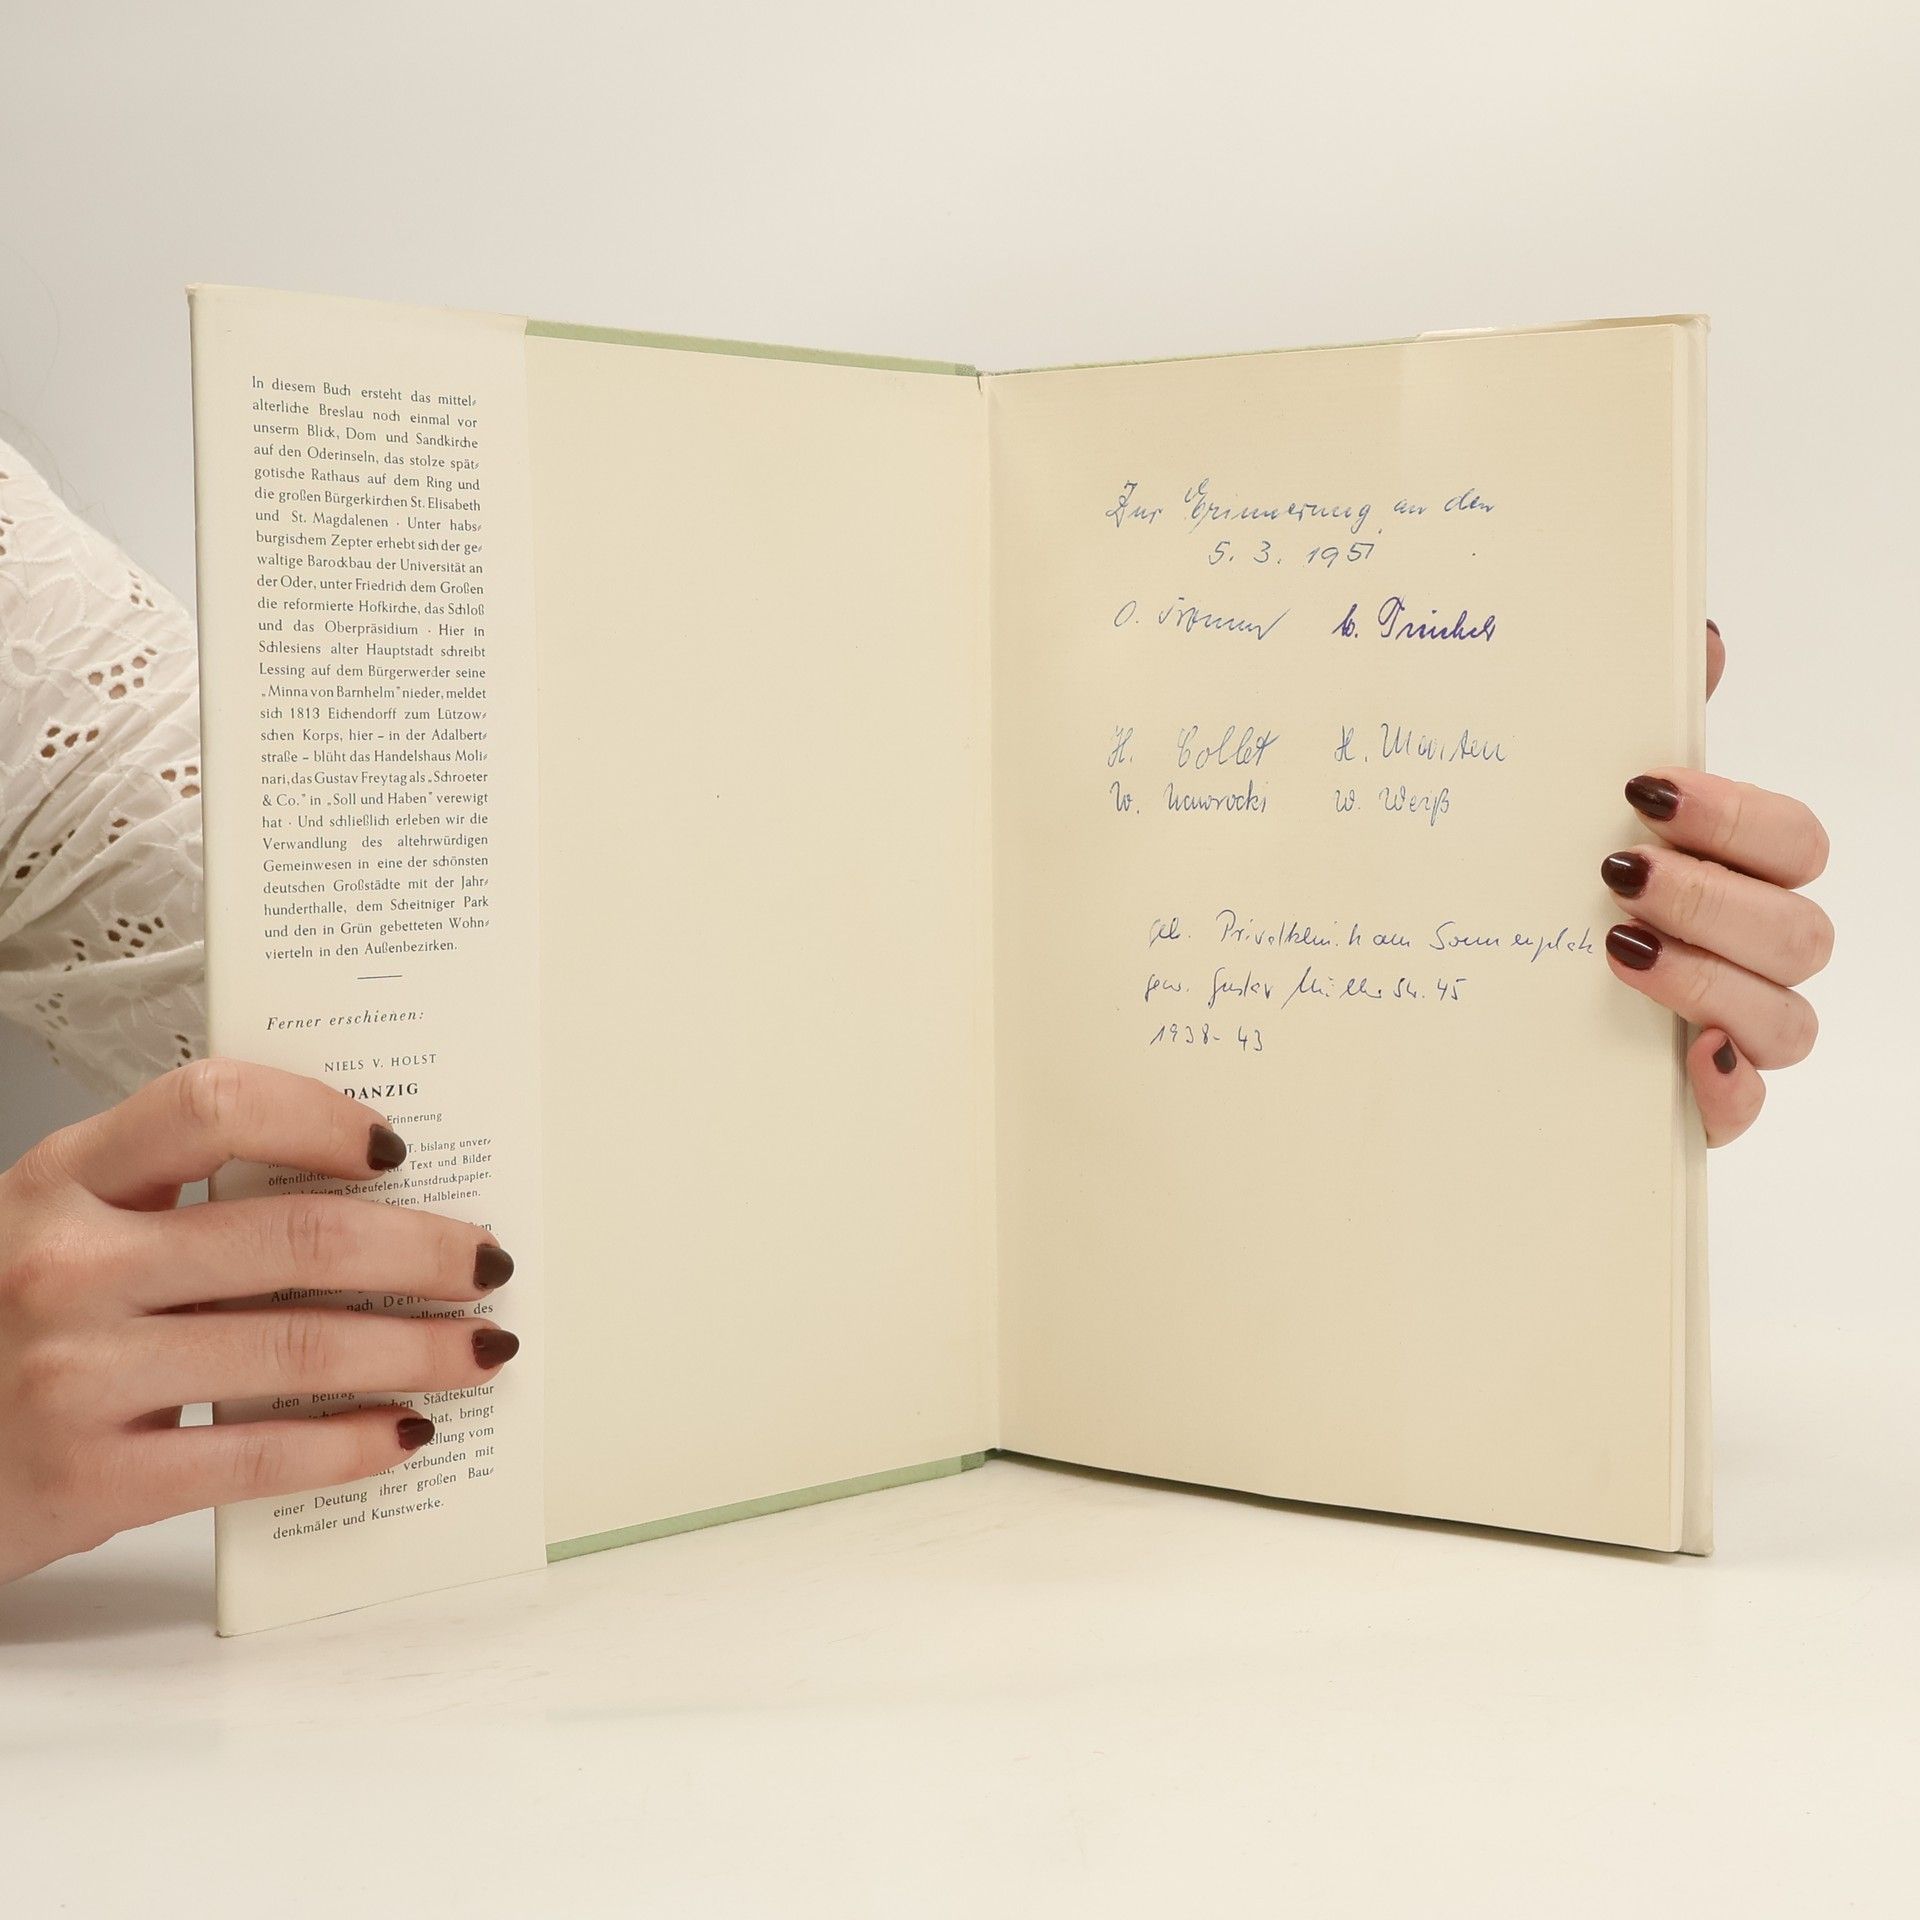 In diesem Buch ersteht das mittel⸗
alterliche Breslau noch einmal vor
unserm Blick, Dom und Sandkirche
auf den Oderinseln, das stolze spät⸗
gotische Rathaus auf dem Ring und
die großen Bürgerkirchen St. Elisabeth
und St. Magdalenen · Unter habs⸗
burgischem Zepter erhebt sich der ge⸗
waltige Barockbau der Universität an
der Oder, unter Friedrich dem Großen
die reformierte Hofkirche, das Schloß
und das Oberpräsidium · Hier in
Schlesiens alter Hauptstadt schreibt
Lessing auf dem Bürgerwerder seine
„Minna von Barnhelm" nieder, meldet
sich 1813 Eichendorff zum Lützow⸗
schen Korps, hier – in der Adalbert⸗
straße – blüht das Handelshaus Moli⸗
nari, das Gustav Freytag als „Schroeter
& Co." in „Soll und Haben" verewigt
hat · Und schließlich erleben wir die
Verwandlung des altehrwürdigen
Gemeinwesen in eine der schönsten
deutschen Großstädte mit der Jahr⸗
hunderthalle, dem Scheitniger Park
und den in Grün gebetteten Wohn⸗
vierteln in den Außenbezirken.
Ferner erschienen:
NIELS V. HOLST
DANZIG
Erinnerung
T. bislang unver⸗
Text und Bilder
öffentlichte
Scheufelen⸗Kunstdruckpapier.
Seiten, Halbleinen.
Aufnahmen
nach
des
chen Beitrag
Städtekultur
hat, bringt
vom
verbunden mit
einer Deutung ihrer großen Bau⸗
denkmäler und Kunstwerke.
Zur Erinnerung an den
5. 3. 1951
O.
H. Collet H. Marten
W. Nawrocki W. Weiß
geb. Privatklinik am Sonnenplatz
gew. Gustav Müller Str. 45
1938-43